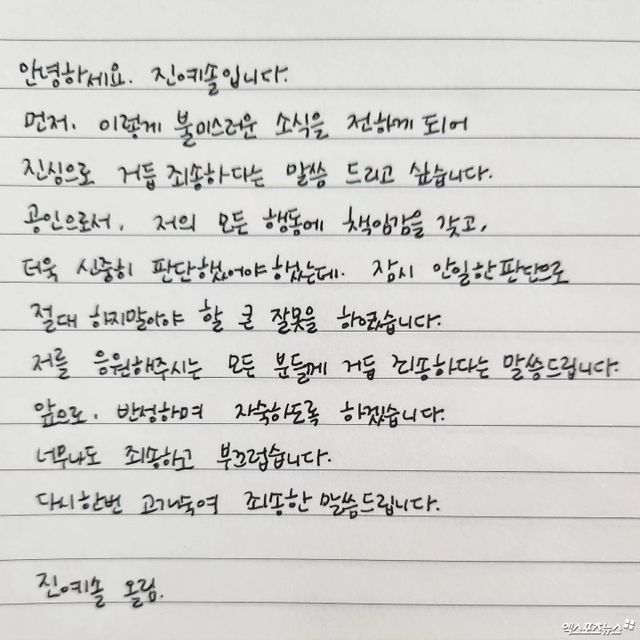 안녕하세요. 진예솔입니다.
먼저, 이렇게 불미스러운 소식을 전하게 되어
진심으로 거듭 죄송하다는 말씀 드리고 싶습니다.
공인으로서, 저의 모든 행동에 책임감을 갖고,
더욱 신중히 판단했어야 했는데. 잠시 안일한 판단으로
절대 하지말아야 할 큰 잘못을 하였습니다.
저를 응원해주시는 모든 분들께 거듭 죄송하다는 말씀드립니다.
앞으로, 반성하며 자숙하도록 하겠습니다.
너무나도 죄송하고 부끄럽습니다.
다시한번 고개숙여 죄송한 말씀드립니다.
진예솔 올림.
엑스포츠뉴스